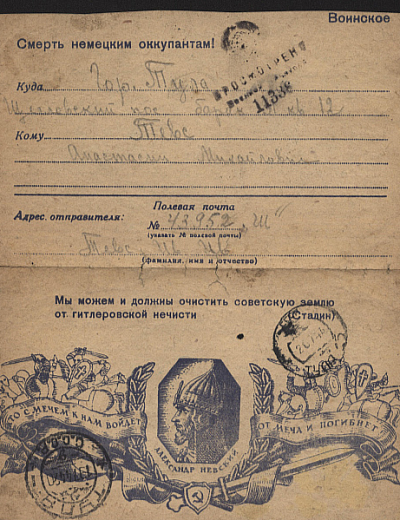 Воинское
Смерть немецким оккупантам!
ПРОСМОТРЕНО
Военной
Куда Гор. Тула
кв 12
Кому Тевс
Анастасии Михайловне
Полевая почта
Адрес отправителя: № 43952 "Ш"
(указать № полевой почты)
Тевс
(фамилия, имя и отчество)
Мы можем и должны очистить советскую землю
от гитлеровской нечисти (Сталин)
КТО С МЕЧЕМ К НАМ ВОЙДЕТ
ОТ МЕЧА И ПОГИБНЕТ
АЛЕКСАНДР НЕВСКИЙ